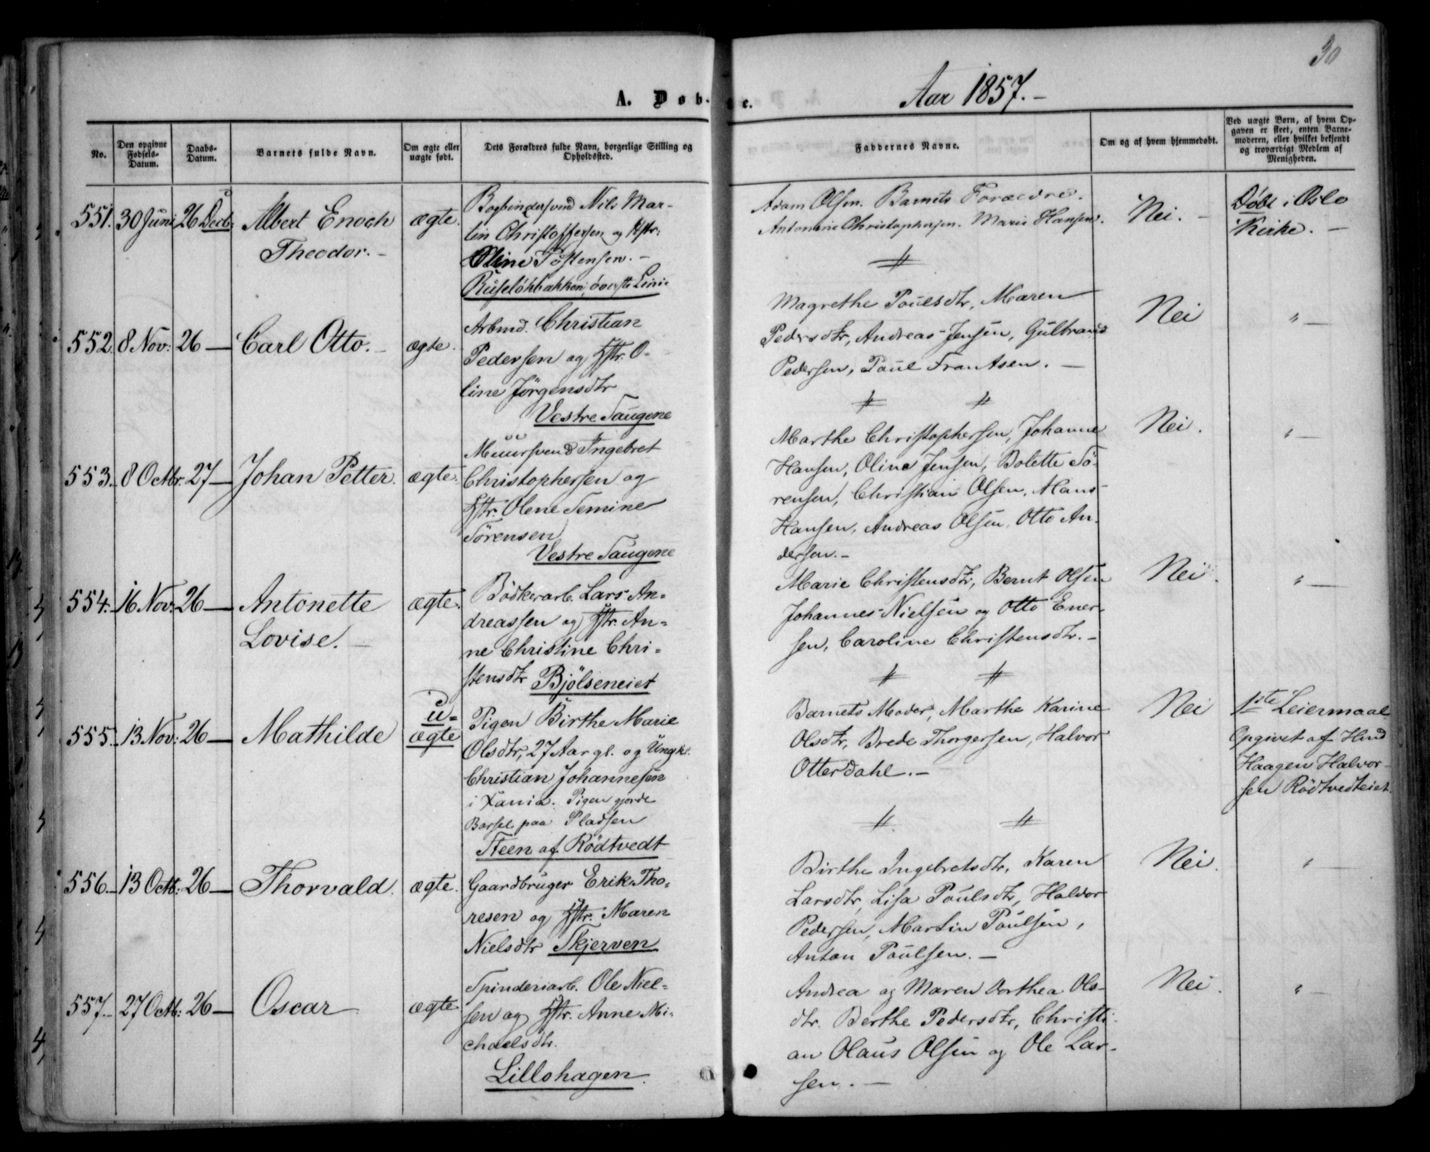 30
A. Døb-te.
Aar 1857.-
No.
Den opgivne Fødsels-Datum.
Daabs-Datum.
Barnets fulde Navn.
Om ægte eller uægte født.
Dets Forældres fulde Navn, borgerlige Stilling og Opholdsted.
Faddernes Navne.
Om og af hvem hjemmedøbt.
Ved uægte Børn, af hvem Opgaven er skeet, enten Barnemoderen, eller hvilket bekjendt og troværdigt Medlem af Menigheden.
551. 30 Juni 26 Decb: Albert Enoch
Theodor. -
ægte.
Bogbindersvend Nils Mar-
tin Christoffersen og Hstr:
Oline Tostensen. -
Ruseløkbakken, överste Linie
Adam Olsen. Barnets Forældre.
Antonine Christophersen. Maren Hansen.
Nei. -
Döbt i Oslo
Kirke. -
552. 8 Nov: 26 - Carl Otto. -
ægte.
Arbmd. Christian
Pedersen og Hstr. O-
line Jørgensdtr
Vestre Saugene
Magrethe Poulsdtr, Maren
Pedersdtr, Andreas Jensen, Gulbrand
Pedersen, Poul Frantsen. -
Nei
" -
553. 8 Octbr. 27 - Johan Petter.
ægte.
Muursvend Ingebret
Christophersen og
Hstr. Olene Semine
Sörensen
Vestre Saugene
Marthe Christophersen, Johanne
Hansen, Oline Jensen, Bolette Sö-
rensen, Christian Olsen, Hans
Hansen, Andreas Olsen, Otto An-
dersen. -
Nei.
" -
554. 16 Nov: 26 - Antonette
Lovise. -
ægte.
Bödkerarb. Lars An-
dreassen og Hstr. An-
ne Christine Chri-
stensdtr Bjölseneiet
Marie Christensdtr, Bernt Olsen
Johannes Nielsen og Otto Ener-
sen, Caroline Christensdtr. -
Nei.
" -
555. 13 Nov: 26 - Mathilde
u-
ægte
Pigen Birthe Marie
Olsdtr, 27 Aar gl. og Ungk.
Christian Johannesen
i Xania. Pigen gjorde
Barsel paa Pladsen
Steen af Rödtvedt
Barnets Moder, Marthe Karine
Olsdtr, Brede Thorgersen, Halvor
Otterdahl. -
Nei
1ste Leiermaal
Opgivet af Hmd
Haagen Halvor-
sen Rödtvedteiet
556. 13 Octb: 26 - Thorvald
ægte.
Gaardbruger Erik Tho-
resen og Hstr. Maren
Nielsdtr Skjerven
Birthe Ingebretsdtr, Karen
Larsdtr, Lisa Poulsdtr, Halvor
Pedersen, Martin Poulsen,
Anton Poulsen. -
Nei.
" -
557. 27 Octb: 26 - Oscar -
ægte.
Spinderiarb. Ole Niel-
sen og Hstr. Anne Mi-
chaelsdtr.
Lillohagen
Andrea og Maren Dorthea Ols-
dtr. Berthe Pedersdtr, Christi-
an Olaus Olsen og Ole Lar-
sen. -
Nei.
" -